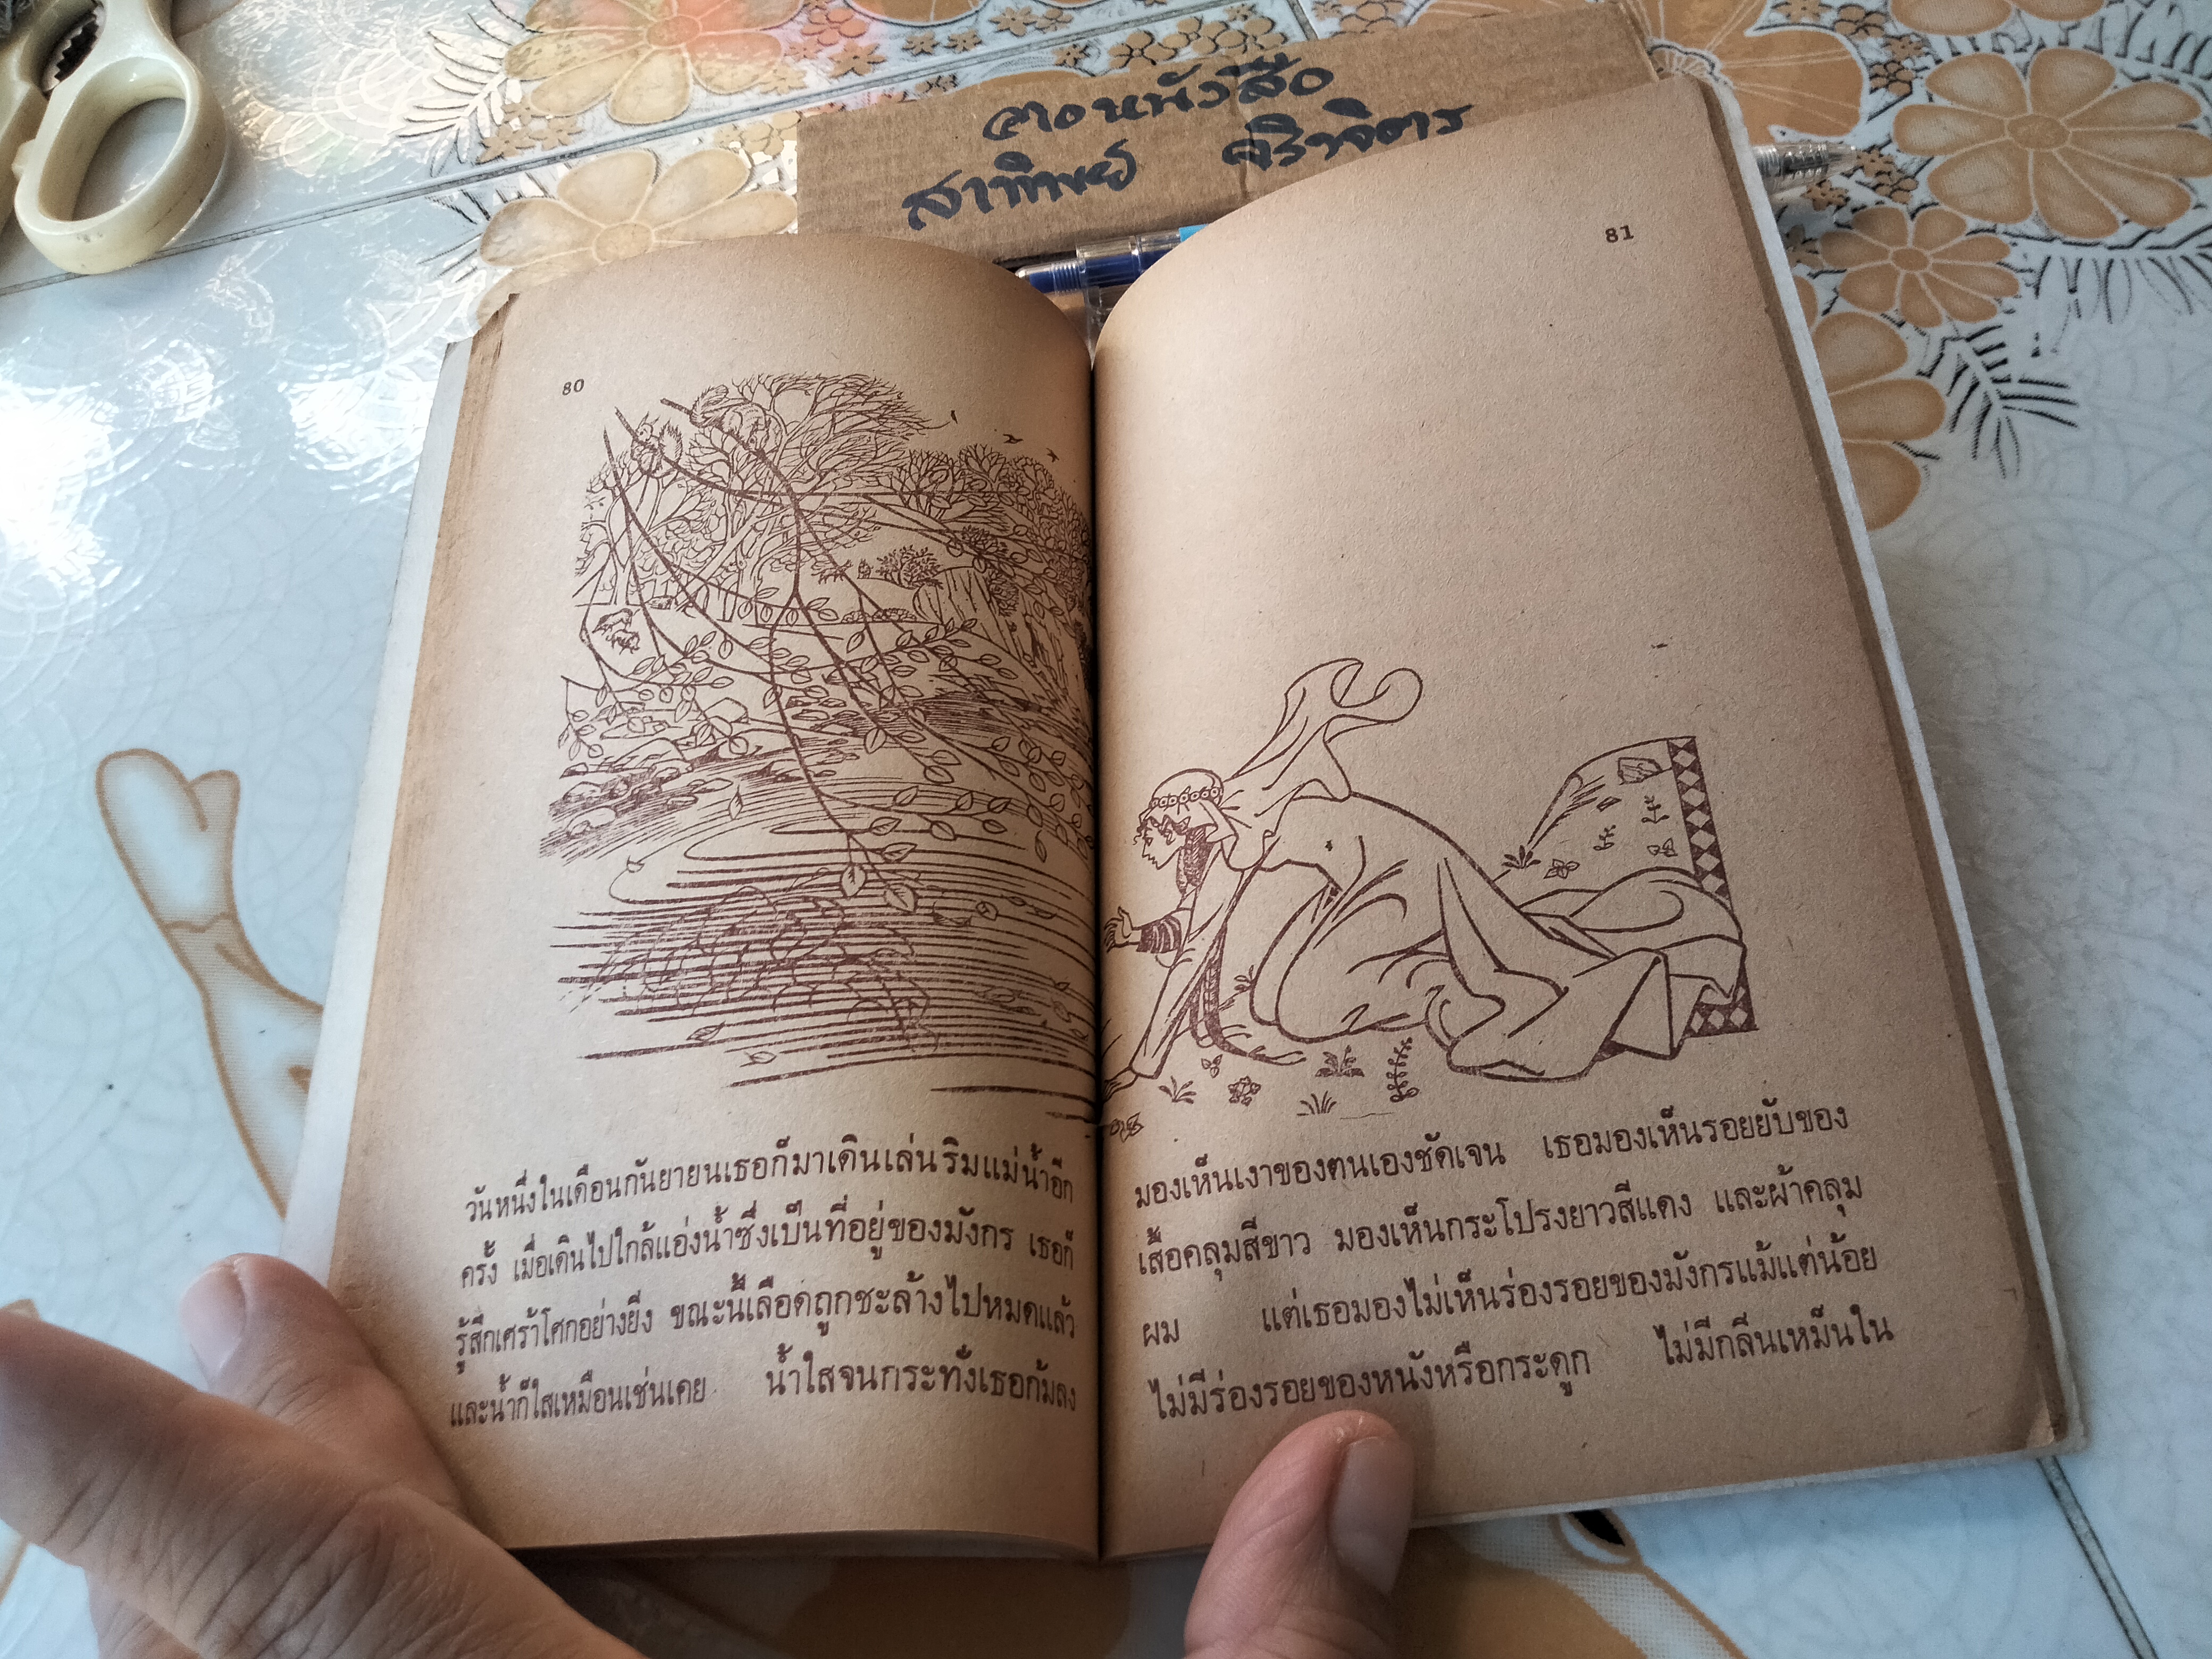 ตอหนังสือ
สาทิพย์ จิราจิตร
80
วันหนึ่งในเดือนกันยายนเธอก็มาเดินเล่นริมแม่น้ำอีก
ครั้ง เมื่อเดินไปใกล้แอ่งน้ำซึ่งเป็นที่อยู่ของมังกร เธอก็
รู้สึกเศร้าโศกอย่างยิ่ง ขณะนี้เลือดถูกชะล้างไปหมดแล้ว
และน้ำก็ใสเหมือนเช่นเคย น้ำใสจนกระทั่งเธอก้มลง
81
มองเห็นเงาของตนเองชัดเจน เธอมองเห็นรอยยับของ
เสื้อคลุมสีขาว มองเห็นกระโปรงยาวสีแดง และผ้าคลุม
ผม แต่เธอมองไม่เห็นร่องรอยของมังกรแม้แต่น้อย
ไม่มีร่องรอยของหนังหรือกระดูก ไม่มีกลิ่นเหม็นใน